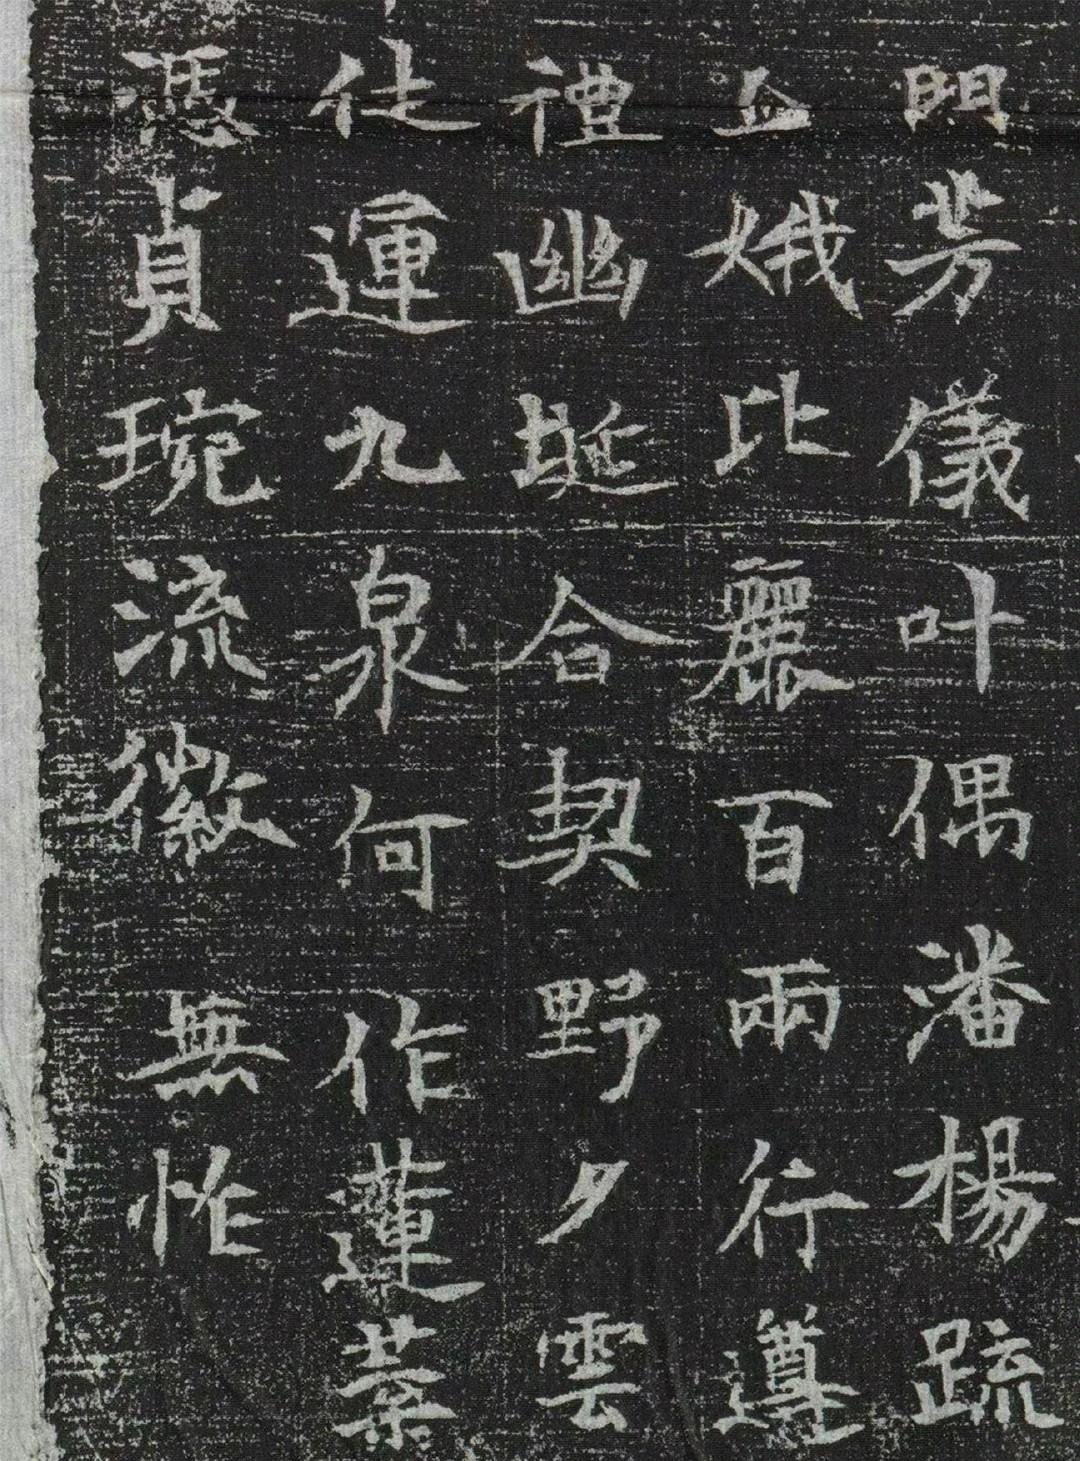 門芳儀叶偶潘楊疏
企娥比麗百兩行遵
禮幽埏合契野夕雲
徙運九泉何作蓮葉
憑貞琬流徽無怍